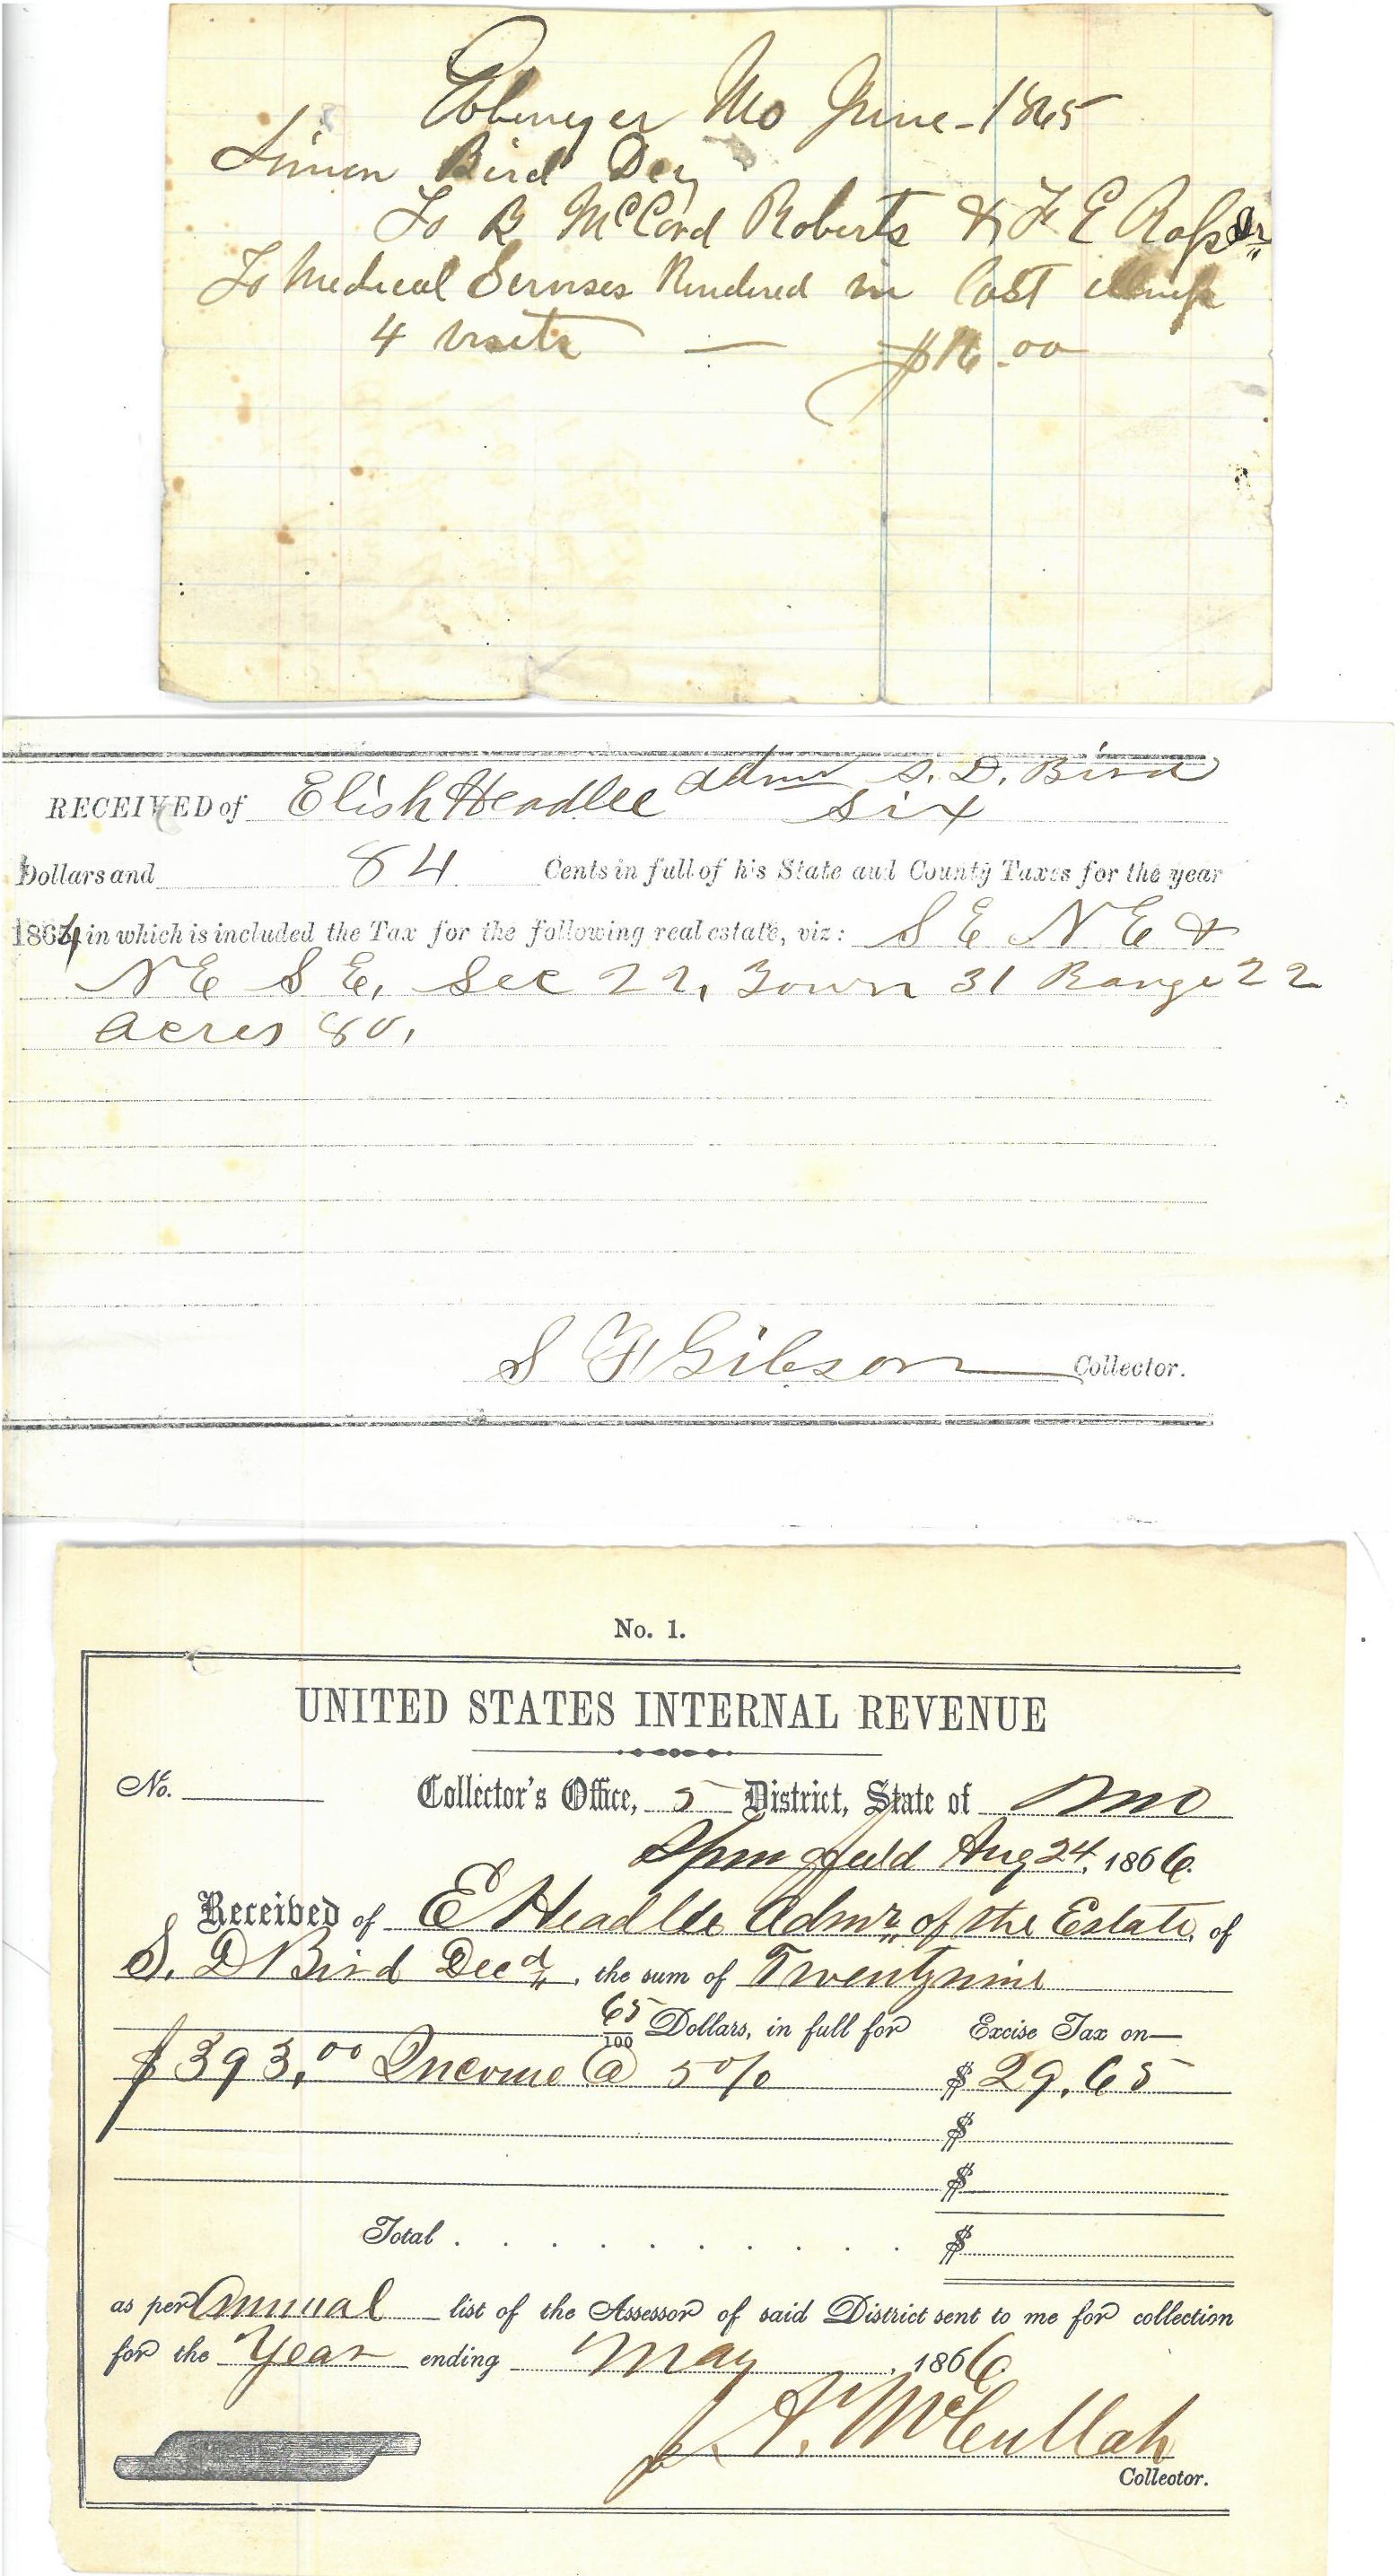 Ebenezer Mo June - 1865
Simon Bird Dec
To B McCord Roberts & F E Ross Dr
To Medical Servises Rendered in last illness
4 visits — $16.00
RECEIVED of Elish Headlee admr S. D. Bird six
Dollars and 84 Cents in full of his State and County Taxes for the year
1864 in which is included the Tax for the following real estate, viz: S E N E &
N E S E, Sec 22, Town 31 Range 22
acres 80,
S F Gibson Collector.
No. 1.
UNITED STATES INTERNAL REVENUE
No. Collector's Office, 5 District, State of Mo
Springfield Aug 24, 1866.
Received of E Headlee Admr. of the Estate of
S. D Bird Decd, the sum of Twenty nine
65/100 Dollars, in full for Excise Tax on—
$393.00 Income @ 5% $29.65
$
$
Total . . . . . . . . . . $
as per Annual list of the Assessor of said District sent to me for collection
for the Year ending May, 1866
McCullah
Collector.